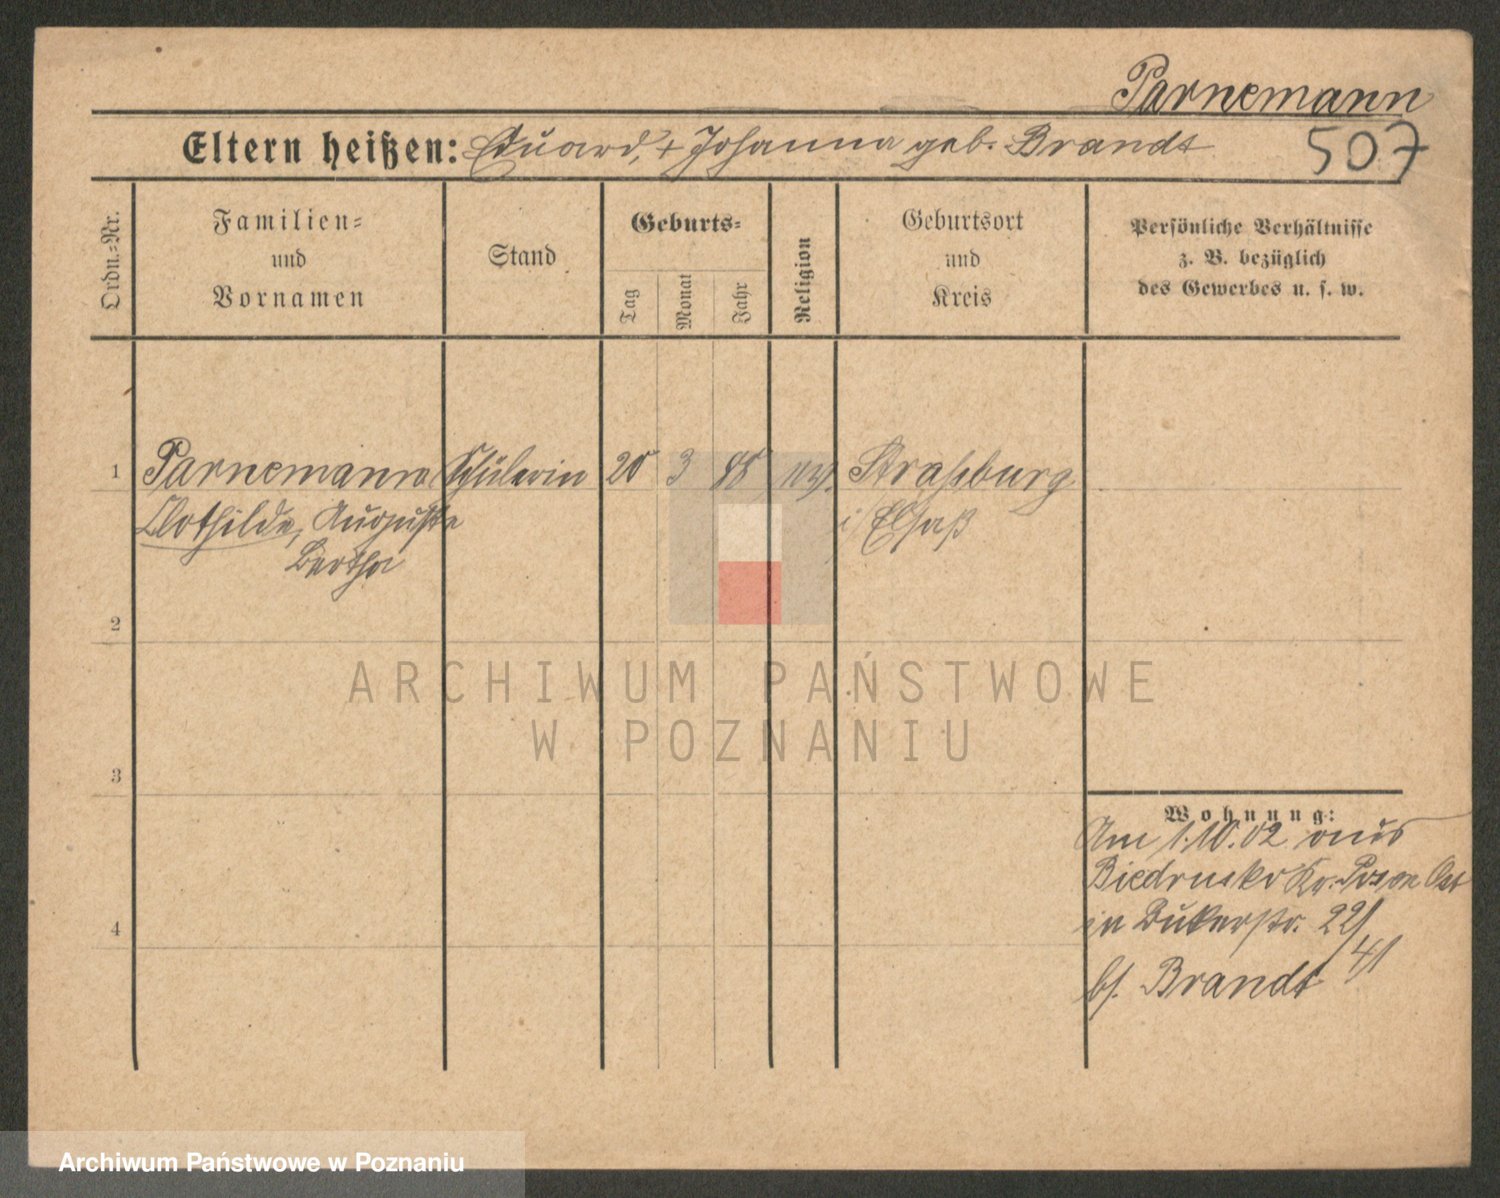 Parnemann
507
Eltern heißen: Eduard, + Johanna geb. Brandt
Ordn.-Nr.
Familien-
und
Vornamen
Stand
Geburts-
Tag
Monat
Jahr
Religion
Geburtsort
und
Kreis
Persönliche Verhältnisse
z. B. bezüglich
des Gewerbes u. s. w.
1 Parnemann Schülerin 20 3 88 Straßburg
Clothilde, Auguste i/ Elsaß
Bertha
2
3
4
Wohnung:
Am 1.10.02 aus
Biedrusko Kr. Posen Ost
in Bukerstr. 22/
41
bs. Brandt
ARCHIWUM PAŃSTWOWE
W POZNANIU
Archiwum Państwowe w Poznaniu